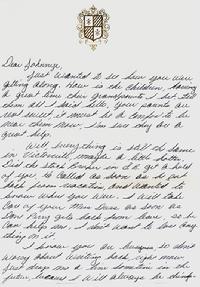 Dear Johnnye,
Just wanted to see how you were
getting along. How is the children, having
a great time their Grandparents I bet. Tell
them all I said hello, your parents are
real sweet, it must be a comfort to be
near them now, I'm sure they be a
great help.
Well, everything is still the same
in Victorville maybe a little hotter.
Did the Stock Broker ever get a hold
of you. He called as soon as he got
back from vacation, and wanted to
know where you were. I will take
care of your
as soon as
gets back from leave, so he
can help me. I don't want to lose any
thing in it.
I know you are busy so don't
worry about writing back right now
just drop me a line sometime in the
future because I will always be